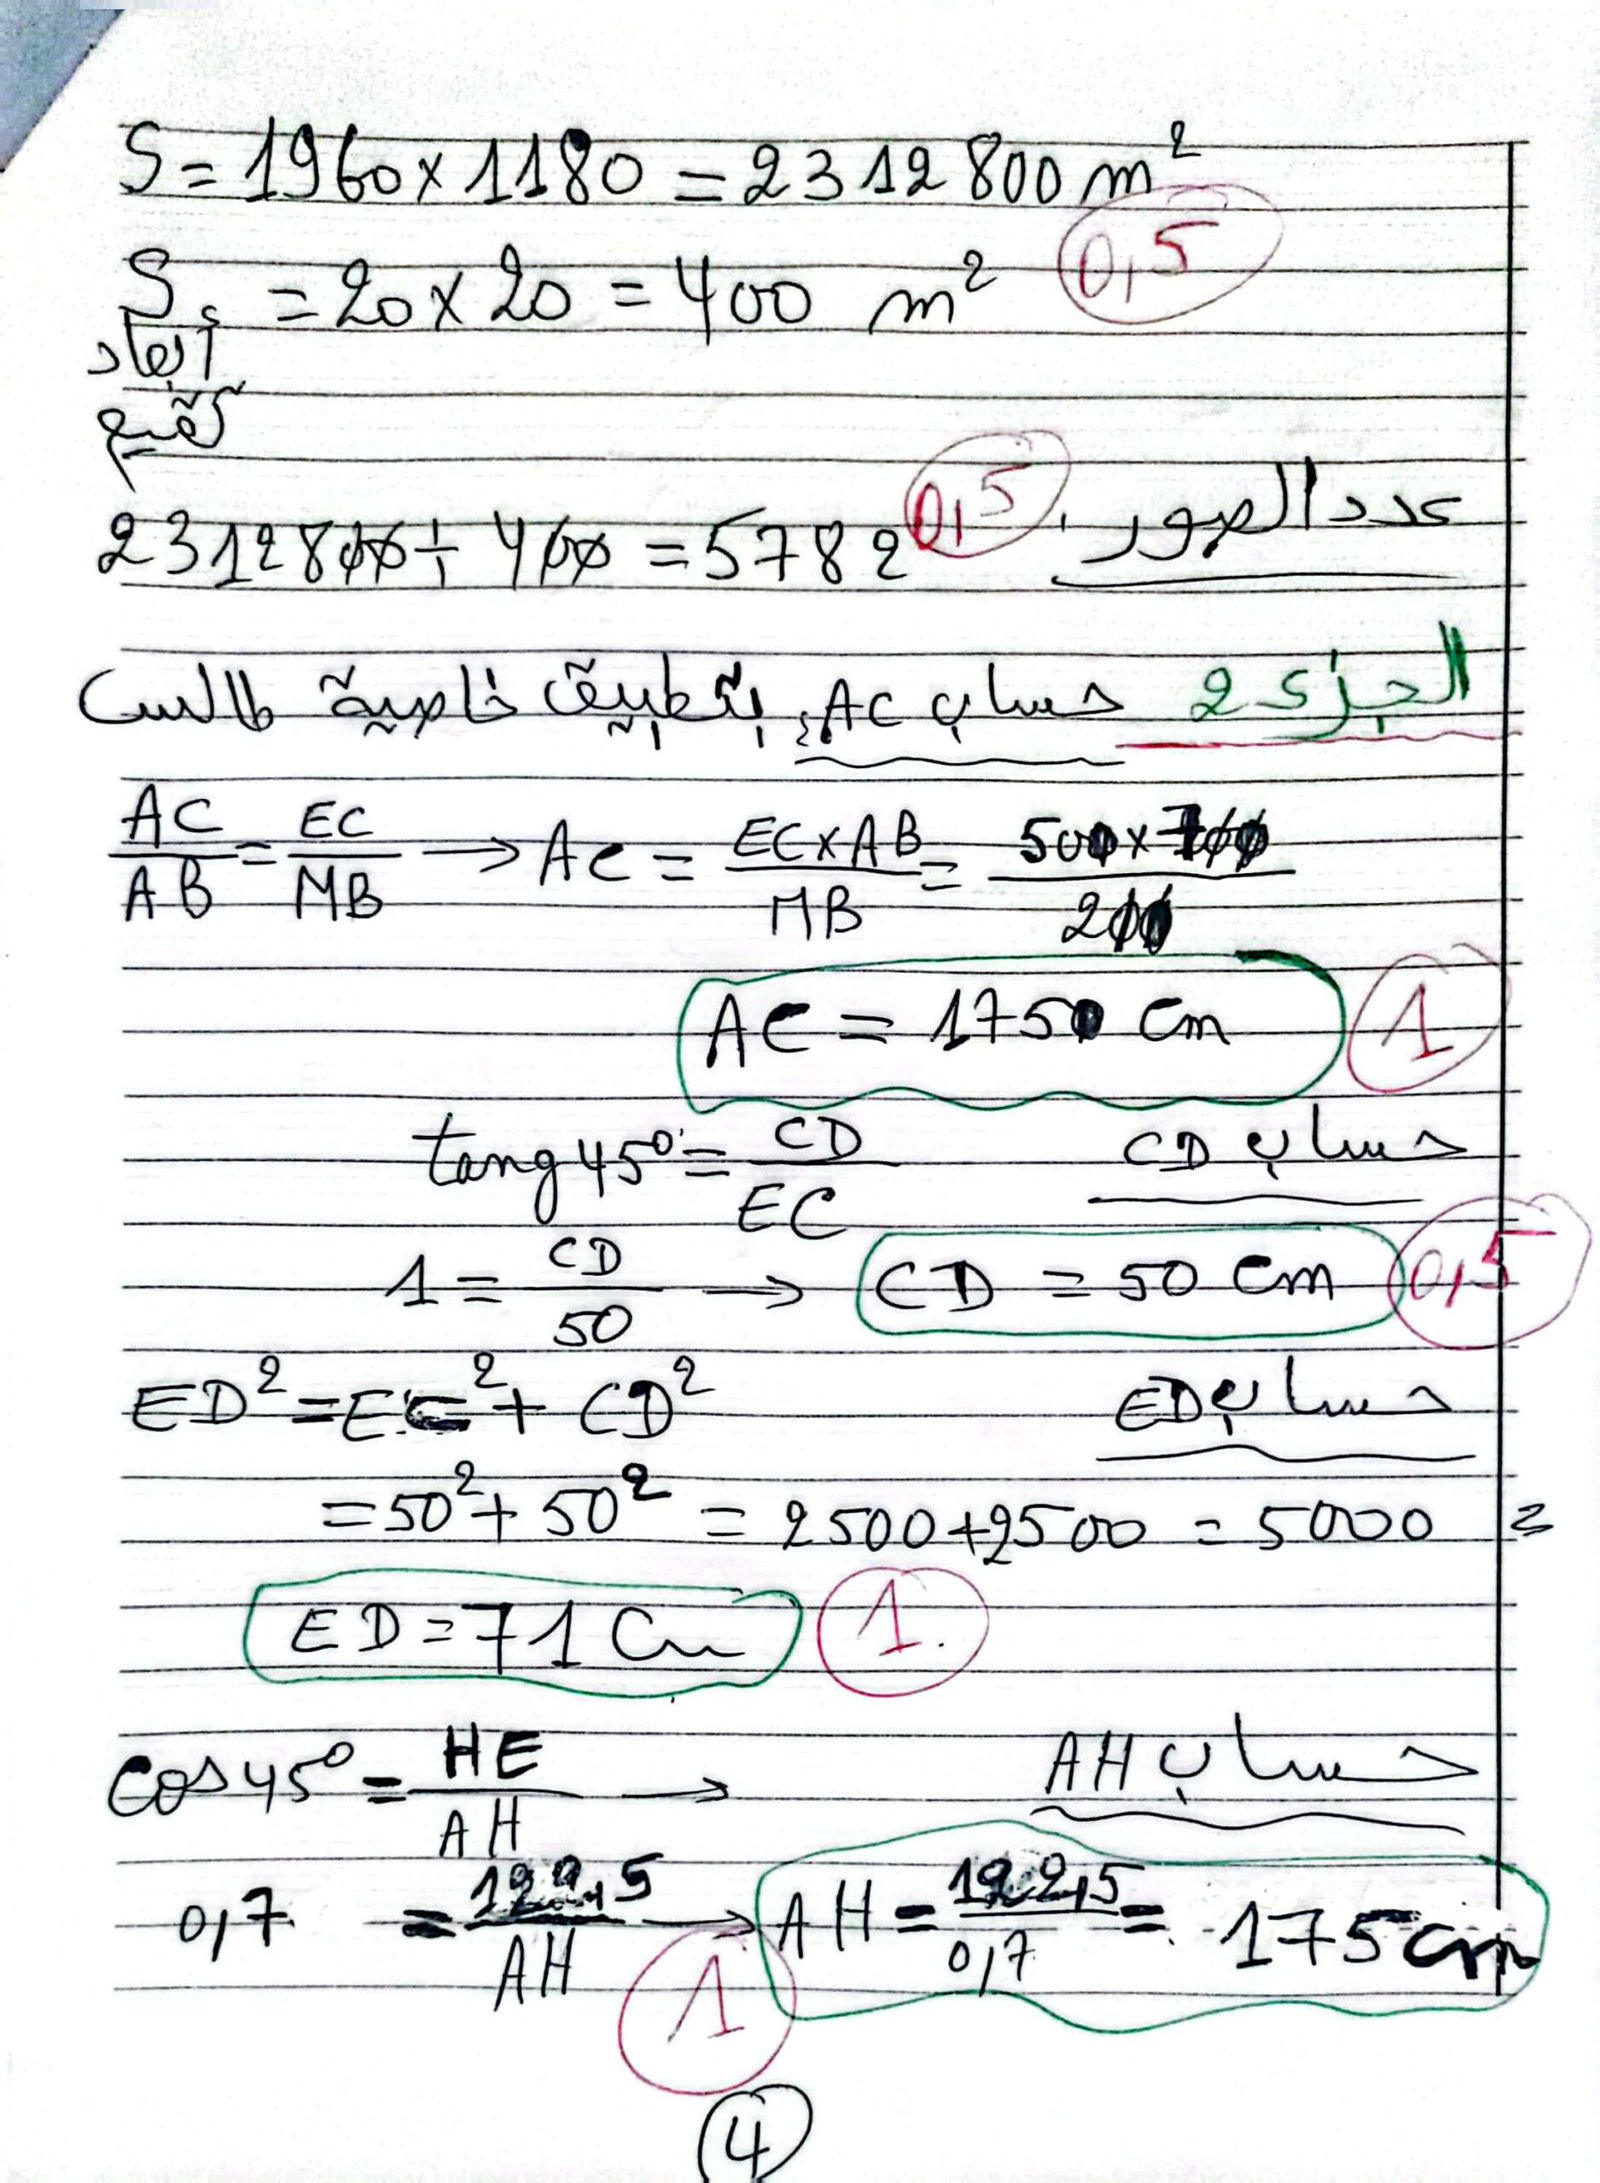 S = 1960 × 1180 = 2312800 m²
S = 20 × 20 = 400 m² 0,5
أبعاد
عدد الصور 0,5
2312800 ÷ 400 = 5782
الجزء 2 حساب AC بتطبيق خاصية طالس
AC/AB = EC/MB → AC = EC×AB/MB = 500×700/200
AC = 1750 cm 1
حساب CD tang 45° = CD/EC
1 = CD/50 → CD = 50 cm 0,5
حساب ED ED² = EC² + CD²
= 50² + 50² = 2500+2500 = 5000 =
ED = 71 Cm 1
حساب AH cos 45° = HE/AH →
0,7 = 122,5/AH → AH = 122,5/0,7 = 175 cm
1
4